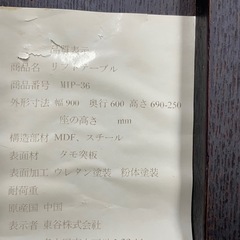 品質表示
商品名 リフトテーブル
商品番号 MIP-36
外形寸法 幅900 奥行600 高さ690-250
座の高さ mm
構造部材 MDF、スチール
表面材 タモ突板
表面加工 ウレタン塗装 粉体塗装
耐荷重
原産国 中国
表示者 東谷株式会社